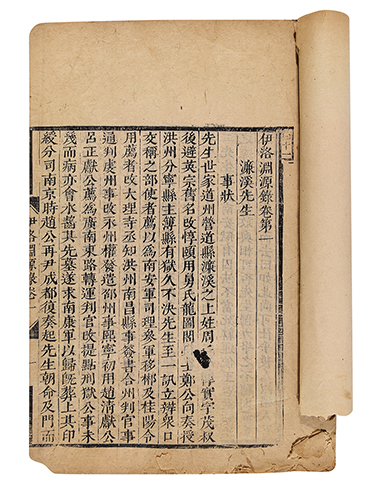 伊洛淵源錄卷第一
濂溪先生
事狀
先生世家道州營道縣濂溪之上姓周 實字茂叔
後避英宗舊名改惇頤用舅氏龍圖閣 士鄭公向奏授
洪州分寧縣主簿縣有獄久不決先生至一訊立辨衆口
交稱之部使者薦以為南安軍司理參軍移郴及桂陽令
用薦者改大理寺丞知洪州南昌縣事簽書合州判官事
通判虔州事改永州權發遣邵州事熙寧初用趙清獻公
呂正獻公薦為廣南東路轉運判官改提點刑獄公事未
幾而病亦會水齧其先墓遂求南康軍以歸旣葬上其印
綬分司南京時趙公再尹成都復奏起先生朝命及門而
伊洛淵源錄卷一